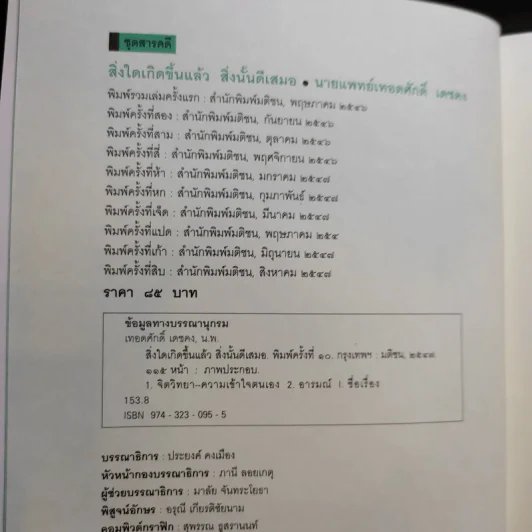 ชุดสารคดี
สิ่งใดเกิดขึ้นแล้ว สิ่งนั้นดีเสมอ ● นายแพทย์เทอดศักดิ์ เดชคง
พิมพ์รวมเล่มครั้งแรก : สำนักพิมพ์มติชน, พฤษภาคม ๒๕๔๖
พิมพ์ครั้งที่สอง : สำนักพิมพ์มติชน, กันยายน ๒๕๔๖
พิมพ์ครั้งที่สาม : สำนักพิมพ์มติชน, ตุลาคม ๒๕๔๖
พิมพ์ครั้งที่สี่ : สำนักพิมพ์มติชน, พฤศจิกายน ๒๕๔๖
พิมพ์ครั้งที่ห้า : สำนักพิมพ์มติชน, มกราคม ๒๕๔๗
พิมพ์ครั้งที่หก : สำนักพิมพ์มติชน, กุมภาพันธ์ ๒๕๔๗
พิมพ์ครั้งที่เจ็ด : สำนักพิมพ์มติชน, มีนาคม ๒๕๔๗
พิมพ์ครั้งที่แปด : สำนักพิมพ์มติชน, พฤษภาคม ๒๕๔
พิมพ์ครั้งที่เก้า : สำนักพิมพ์มติชน, มิถุนายน ๒๕๔๗
พิมพ์ครั้งที่สิบ : สำนักพิมพ์มติชน, สิงหาคม ๒๕๔๗
ราคา ๘๕ บาท
ข้อมูลทางบรรณานุกรม
เทอดศักดิ์ เดชคง, น.พ.
สิ่งใดเกิดขึ้นแล้ว สิ่งนั้นดีเสมอ. พิมพ์ครั้งที่ ๑๐. กรุงเทพฯ : มติชน, ๒๕๔๗
๑๑๕ หน้า : ภาพประกอบ.
1. จิตวิทยา-ความเข้าใจตนเอง 2. อารมณ์ I. ชื่อเรื่อง
153.8
ISBN 974 - 323 - 095 - 5
บรรณาธิการ : ประยงค์ คงเมือง
หัวหน้ากองบรรณาธิการ : ภานี ลอยเกตุ
ผู้ช่วยบรรณาธิการ : มาลัย จันทระโยธา
พิสูจน์อักษร : อรุณี เกียรติชัยนาม
คอมพิวต์กราฟิก : สุพรรณ ธูสรานนท์